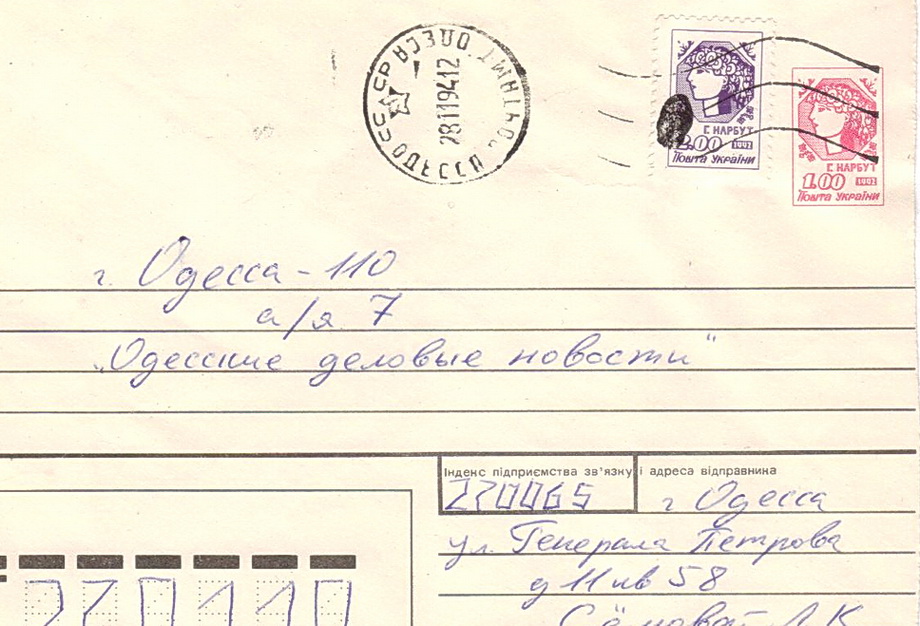 СССР ОДЕСА ПОЧТАМТ ОДЕССА СССР
28119412
Г. НАРБУТ
2.00 1992
Пошта України
Г. НАРБУТ
1.00 1992
Пошта України
г. Одесса - 110
а/я 7
„Одесские деловые новости"
Індекс підприємства зв'язку і адреса відправника
270065 г Одесса
ул. Генерала Петрова
д 11 кв 58
270110